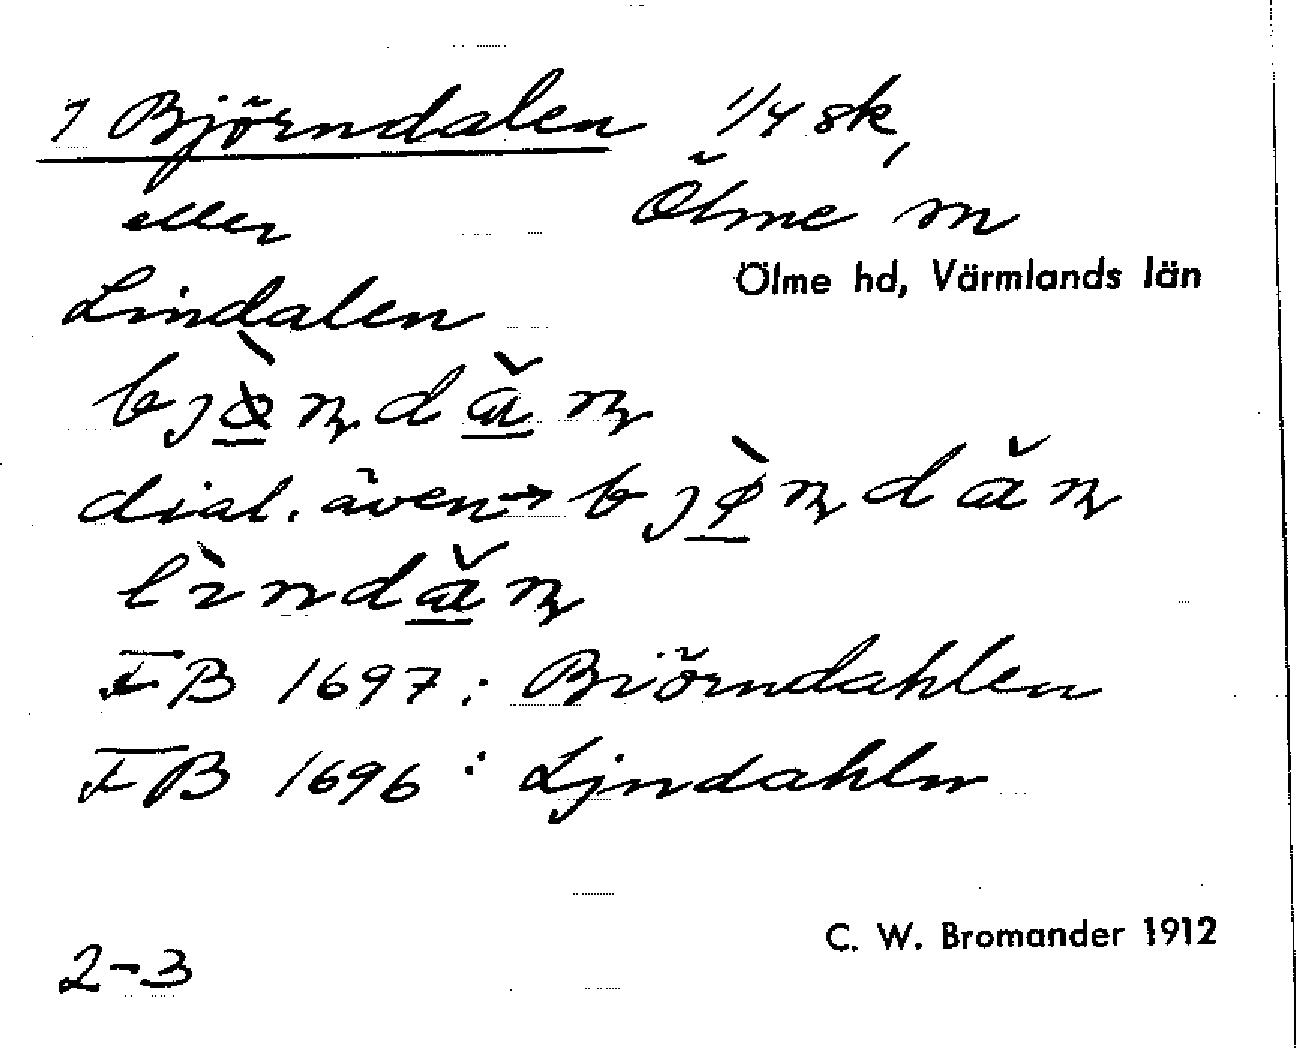 1 Björndalen 1/4 sk,
eller Ölme sn
Ölme hd, Värmlands län
Lindalen
bjø̀ɳdăɳ
dial. även → bjø̀ɳdăɳ
lìndăɳ
FB 1697: Biörndahlen
FB 1696: Ljndahln
C. W. Bromander 1912
2-3